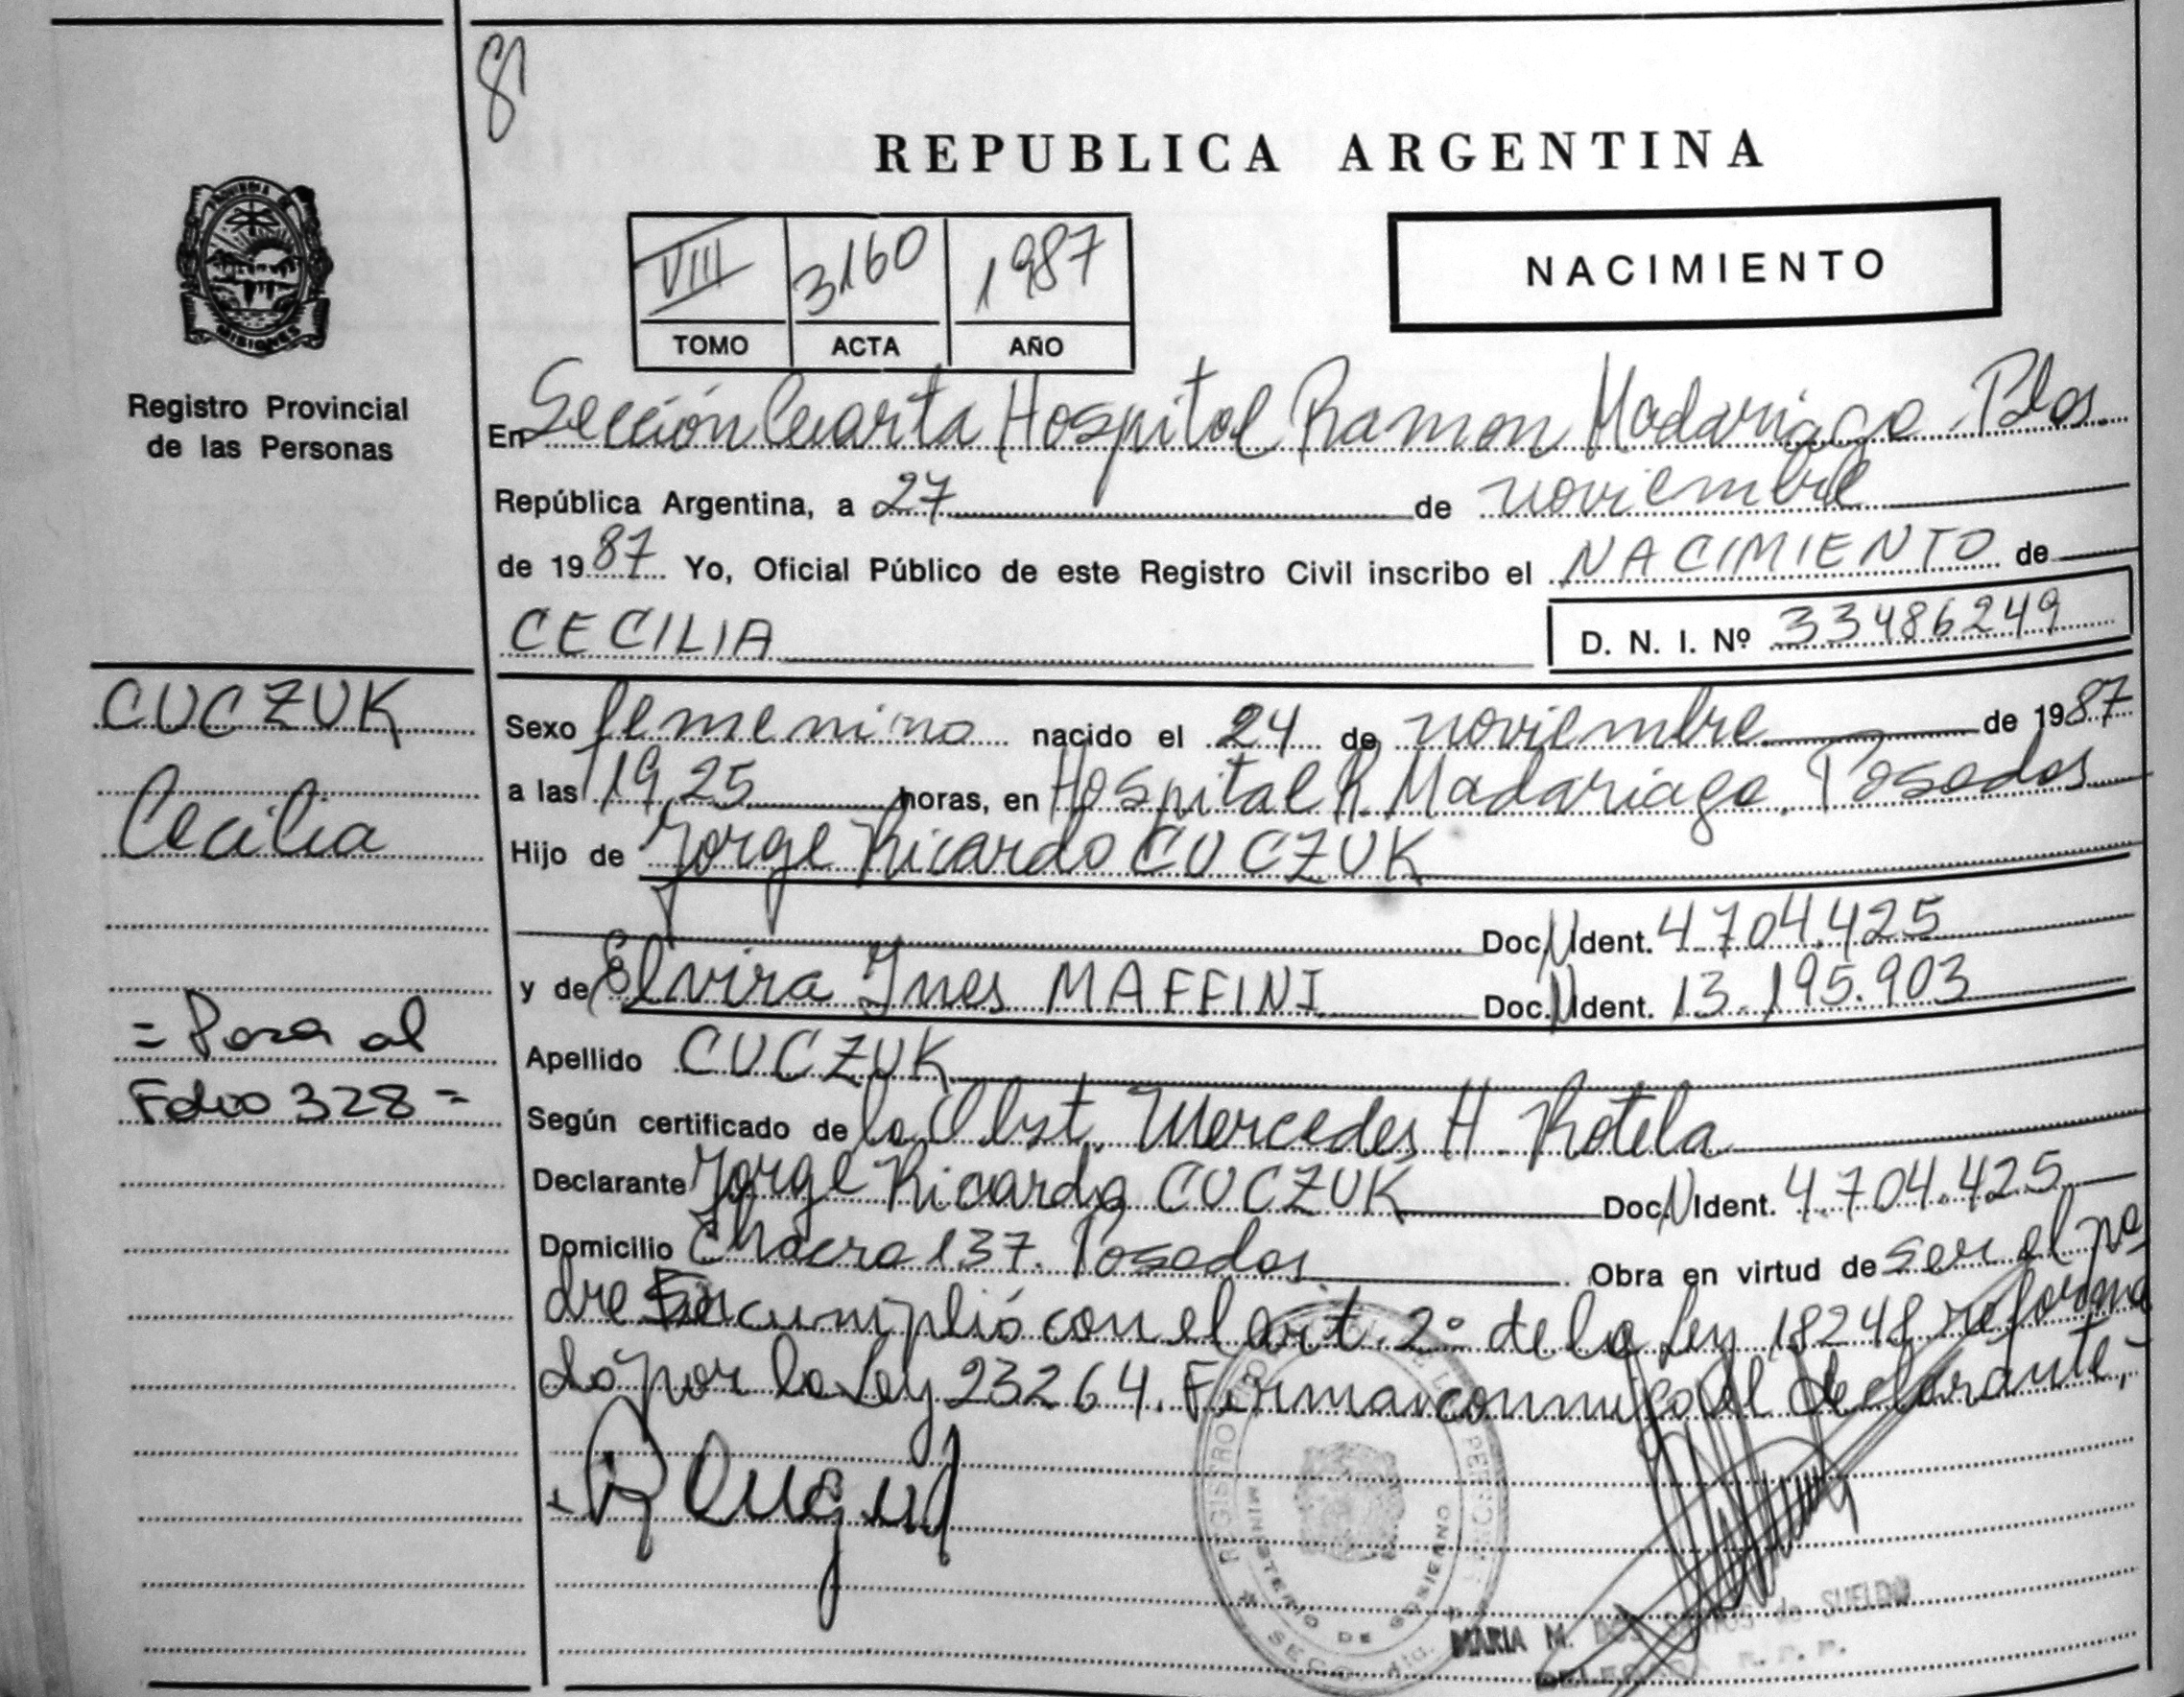 8
REPUBLICA ARGENTINA
VIII 3160 1987
TOMO ACTA AÑO
NACIMIENTO
MISIONES
Registro Provincial
de las Personas
En Sección Cuarta Hospital Ramon Madariaga. Pdas.
República Argentina, a 27 de noviembre
de 1987 Yo, Oficial Público de este Registro Civil inscribo el NACIMIENTO de
CECILIA
D. N. I. Nº 33486249
CUCZUK
Cecilia
= Pasa al
Folio 328 =
Sexo femenino nacido el 24 de noviembre de 1987
a las 19,25 horas, en Hospital R. Madariaga. Posadas
Hijo de Jorge Ricardo CUCZUK
Doc. N Ident. 4.704.425
y de Elvira Ines MAFFINI Doc. N Ident. 13.195.903
Apellido CUCZUK
Según certificado de la Obst. Mercedes H. Rotela
Declarante Jorge Ricardo CUCZUK Doc. N Ident. 4.704.425
Domicilio Chacra 137. Posadas. Obra en virtud de ser el pa-
dre cumplió con el art. 2º de la Ley 18248 reforma
do por la Ley 23264. Firma conmigo el declarante,-
REGISTRO PROVINCIAL DE LAS PERSONAS
MINISTERIO DE GOBIERNO
MARIA M. DOS SANTOS de SUELDO
R. P. P.